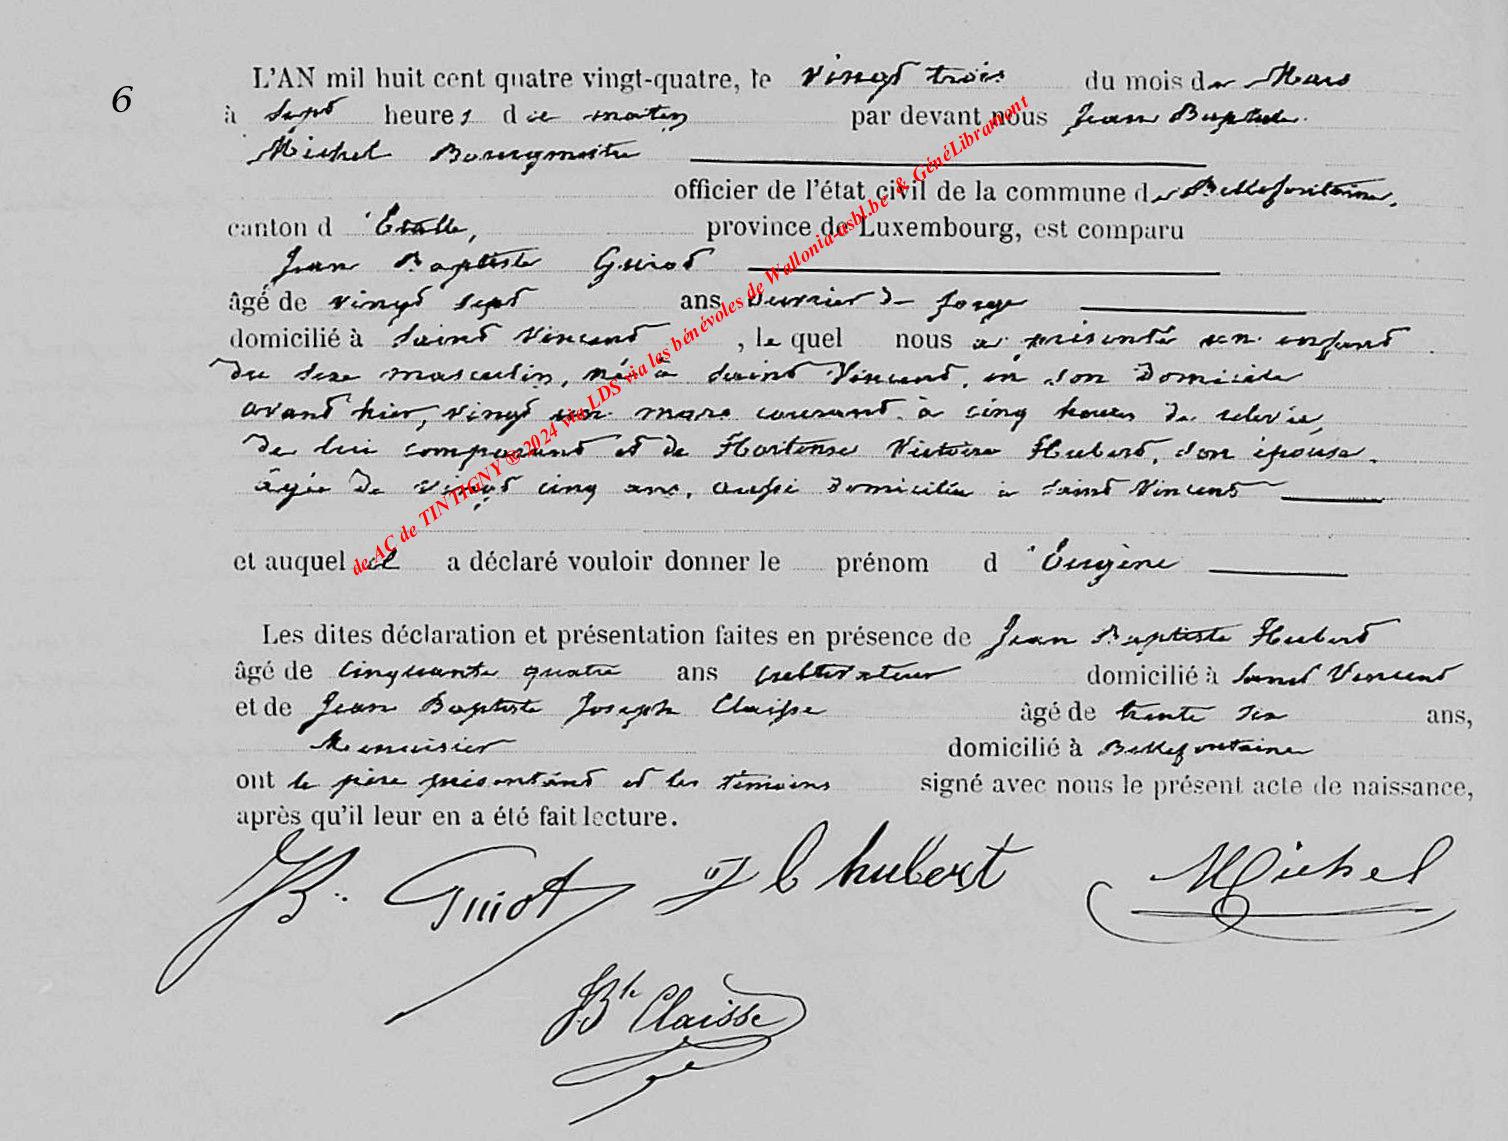 6
L'AN mil huit cent quatre vingt-quatre, le vingt trois du mois de Mars
à sept heures du matin par devant nous Jean Baptiste
Michel Bourgmestre
officier de l'état civil de la commune de Bellefontaine,
canton d'Etalle, province de Luxembourg, est comparu
Jean Baptiste Guiot
âgé de vingt sept ans ouvrier de forge
domicilié à Saint Vincent, le quel nous a présenté un enfant
du sexe masculin, né à Saint Vincent, en son domicile
avant hier, vingt un mars courant à cinq heures de relevée,
de lui comparant et de Hortense Victoire Hubert, son épouse,
âgée de vingt cinq ans, aussi domiciliée à Saint Vincent
et auquel il a déclaré vouloir donner le prénom d'Eugène
Les dites déclaration et présentation faites en présence de Jean Baptiste Hubert
âgé de cinquante quatre ans cultivateur domicilié à Saint Vincent
et de Jean Baptiste Joseph Claisse âgé de trente six ans,
Menuisier domicilié à Bellefontaine
ont le père présentant et les témoins signé avec nous le présent acte de naissance,
après qu'il leur en a été fait lecture.
JB. Guiot J b hubert Michel
JBte Claisse
de AC de TINTIGNY ® 2024 via LDS via les bénévoles de Wallonia-asbl.be & GénéLibramont